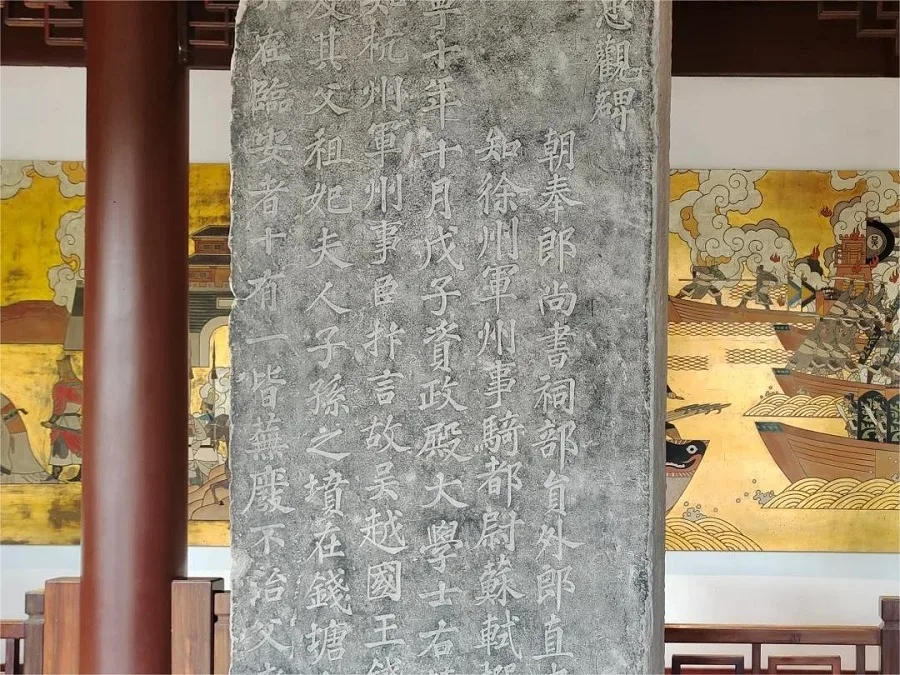 觀碑
朝奉郎尚書祠部員外郎直
知徐州軍州事騎都尉蘇軾撰
寧十年十月戊子資政殿大學士右
知杭州軍州事臣抃言故吴越國王錢
及其父祖妃夫人子孫之墳在錢塘
在臨安者十有一皆蕪廢不治父